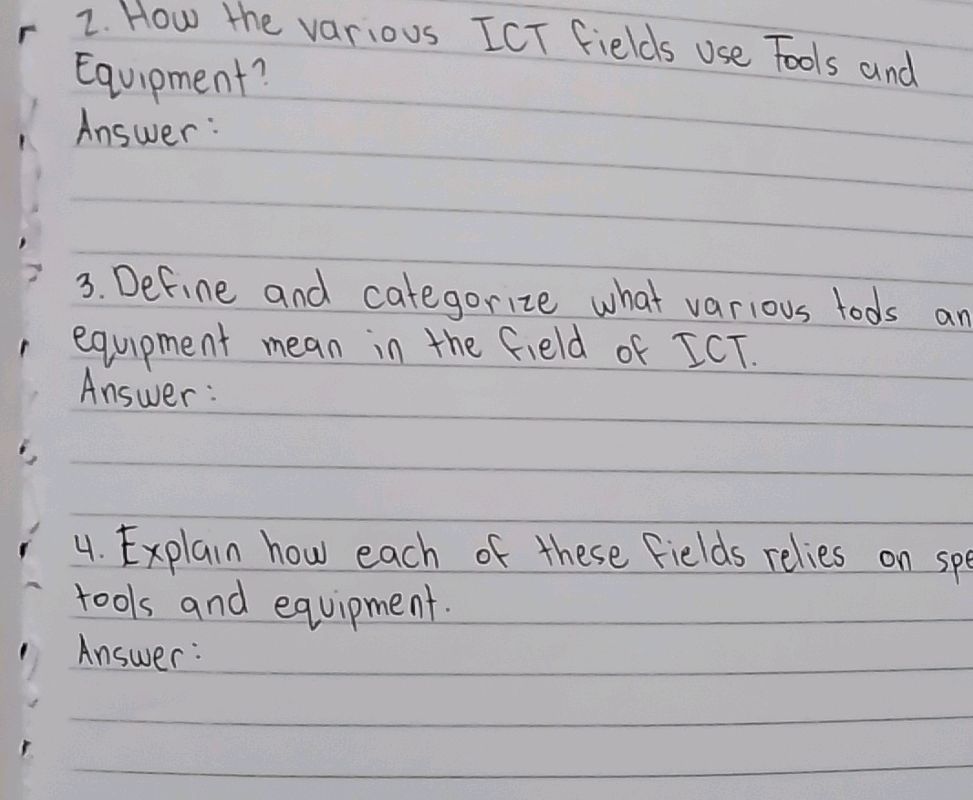 2. How the various ICT fields use Tools and
Equipment?
Answer:
3. Define and categorize what various tools an
equipment mean in the field of ICT.
Answer:
4. Explain how each of these fields relies on spe
tools and equipment.
Answer: